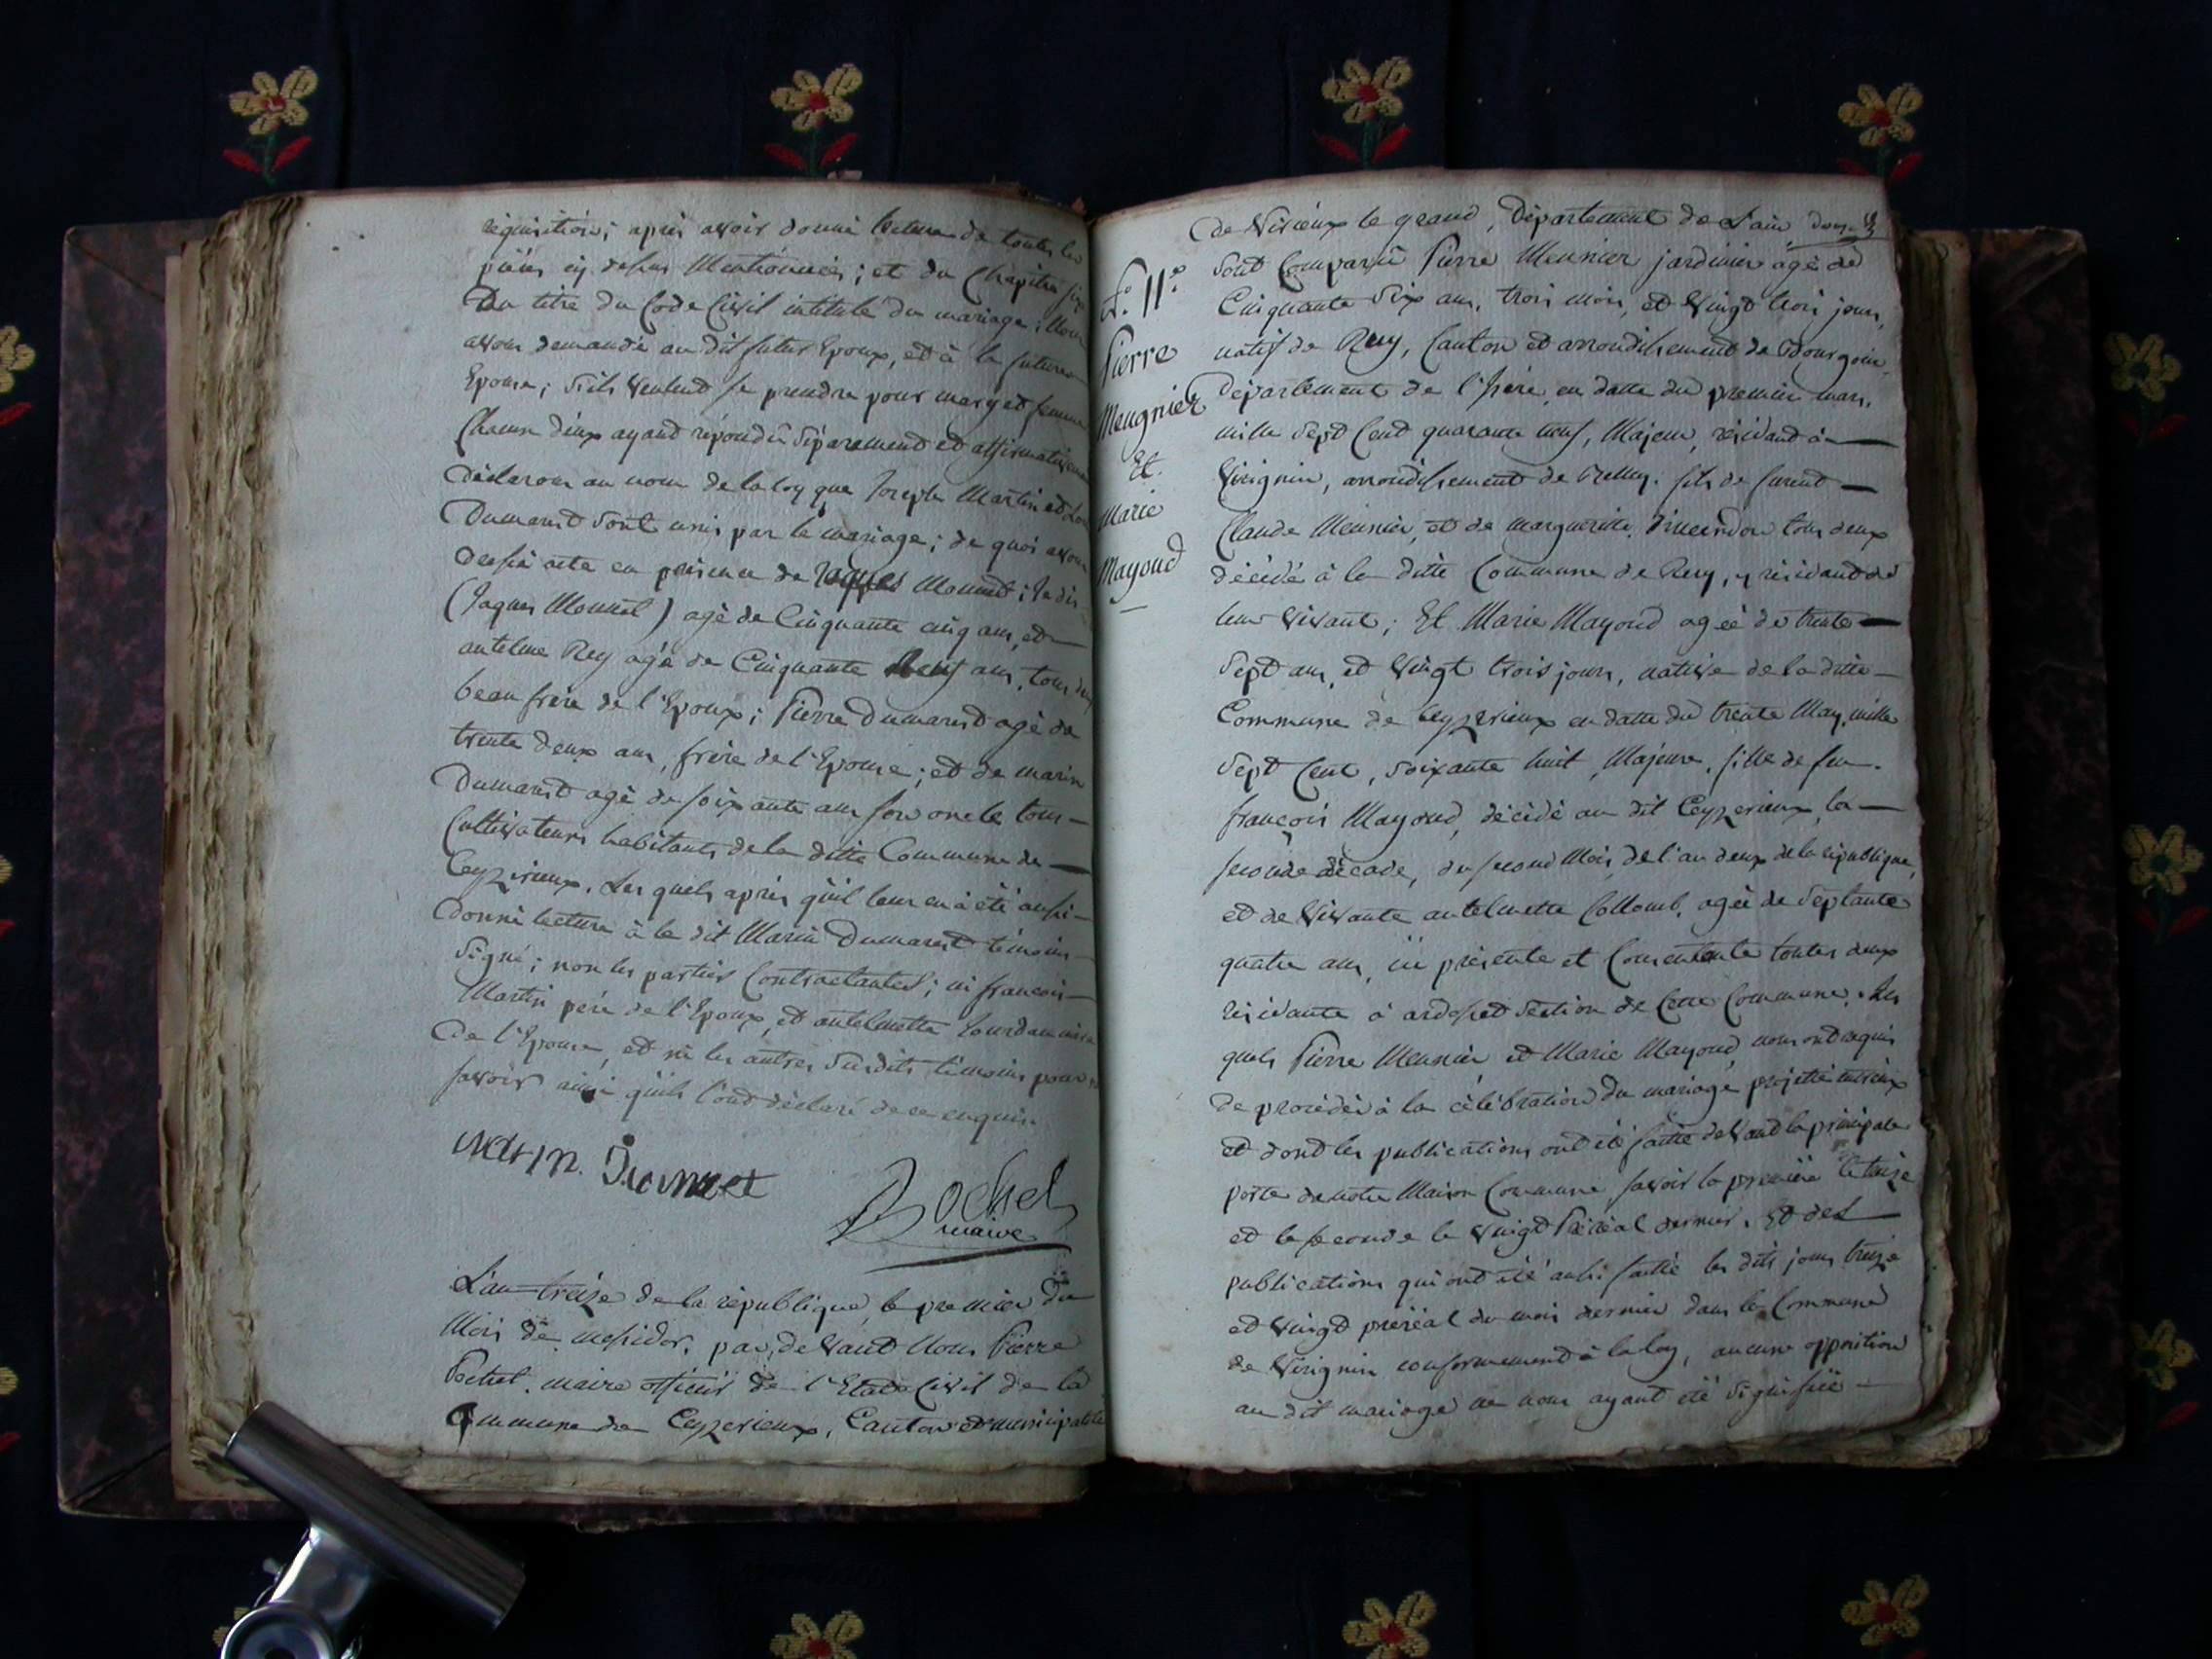 réquisition; après avoir donné lecture de toutes les
pièces cy dessus Mentionnées; et du Chapitre six
Du titre du Code Civil intitulé du mariage; Nous
avons demandé au dit futur Epoux, et à la future
Epouse; s'ils veulent se prendre pour mary et femme
Chacun d'eux ayand répondû séparement et affirmativement
déclarons au nom de la loy que Joseph Martin et
Dumarest sont unis par le mariage; de quoi avons
dressé acte en présence de Jaques Monnet; Je dis
(Jaques Monnet) agé de Cinquante cinq ans, et
antelme Rey agé de Cinquante neuf ans, tous deux
beau frère de l'Epoux; Pierre Dumarest agé de
trente deux ans, frère de l'Epouse; et de marin
Dumarest agé de soixante ans son oncle tous
Cultivateurs habitants de la ditte Commune de
Ceyzerieux. Les quels après qu'il leur en à été aussi
donné lecture à le dit Marin Dumarest témoins
Signé; non les parties Contractantes; ni francois
Martin père de l'Epoux, et antelmette Lourdau mère
de l'Epouse, et ni les autres Susdits témoins pour ne
savoir ainsi qu'ils l'ont déclaré de ce enquis.
marin Dumaret
Pochet
maire
L'an treize de la république, le premier du
Mois de messidor. par devant Nous Pierre
Pochet. maire officier de l'Etat Civil de la
Commune de Ceyzerieux, Canton et municipalité
de Virieux le grand, Département de L'ain
N.º 11.e
Pierre
Meugnier
Et
Marie
Mayoud
Sont Comparû Pierre Meunier jardinier agé de
Cinquante Six ans, trois mois, et vingt trois jours,
natif de Ruy, Canton et arrondissement de Bourgoin
département de l'Isère, en datte du premier mars,
mille Sept Cent quarante neuf, Majeur, résidant à
Virignin, arrondissement de Belley. fils de furent
Claude Meunier, et de marguerite tous deux
décédé à la ditte Commune de Ruy, y résidand dè
leur vivant; Et Marie Mayoud agée de trente
Sept ans, et vingt trois jours, native de la ditte
Commune de Ceyzerieux en datte du trente May, mille
Sept Cent, Soixante huit, Majeure, fille de feu.
françois Mayoud, décédé au dit Ceyzerieux, la
seconde décade, du second Mois, de l'an deux de la république,
et de vivante antelmette Collomb, agée de Septante
quatre ans, ici présente et Consentente toutes deux
résidante à ardosset Section de Cette Commune. Les
quels Pierre Meunier et Marie Mayoud, nous ont requis
de procéder à la célébration du mariage projetté entr'eux
et dont les publications ont été faitte devant la principale
porte de notre Maison Commune savoir la première le treize
et la seconde le vingt Préréal dernier. Et des
publications qui ont été aussi faitte les dits jours treize
et vingt préréal du mois dernier dans la Commune
de Virignin conformement à la loy, aucune opposition
au dit mariage ne nous ayant été signifiée